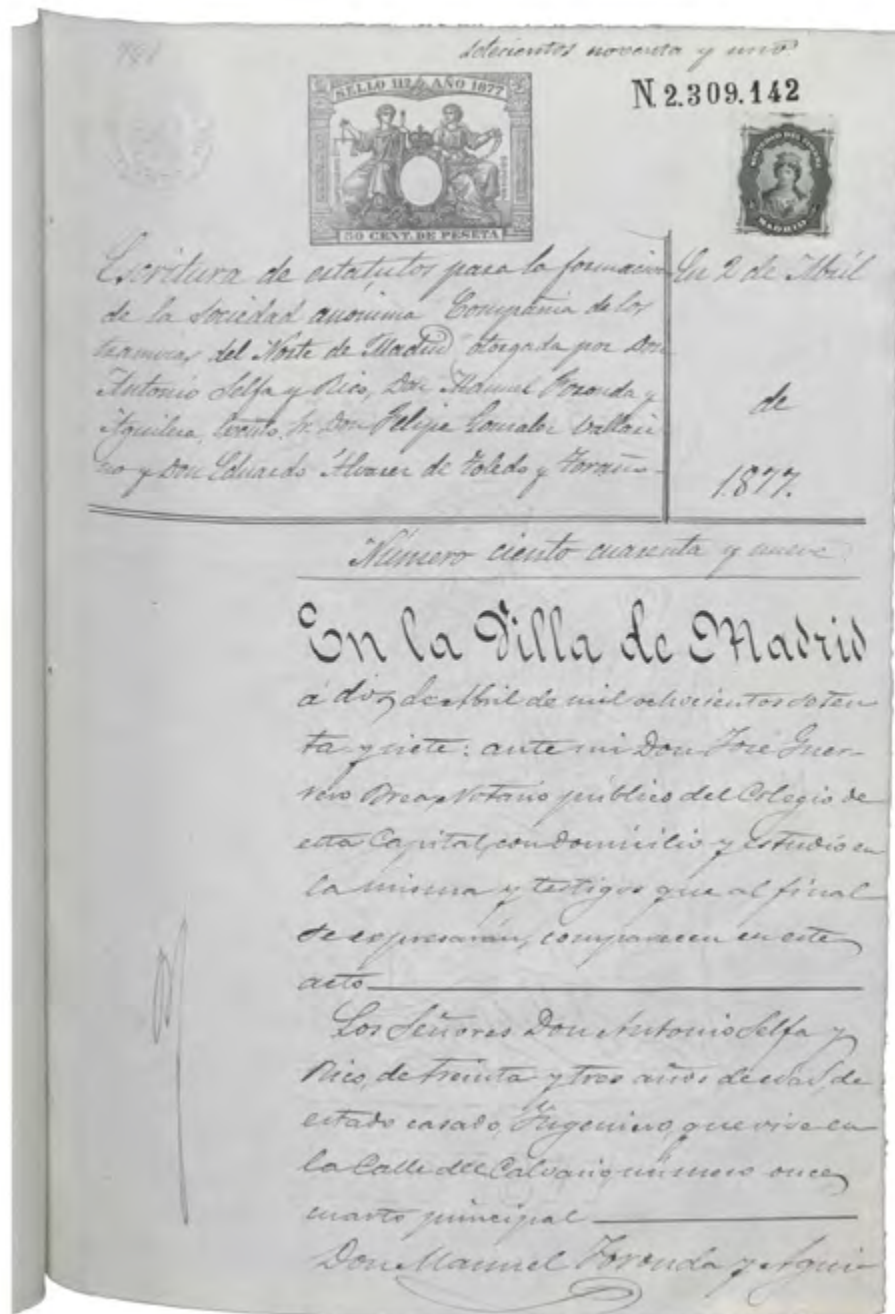 791
setecientos noventa y uno
SELLO 11º AÑO 1877
50 CENT. DE PESETA
N. 2.309.142
MADRID
Escritura de estatutos para la formacion
de la sociedad anonima Compañia de los
tranvias del Norte de Madrid otorgada por Don
Antonio Selfa y Rico, Don Manuel Foronda y
Aguilera, Don Felipe Gonzalez Vallari
no y Don Eduardo Álvarez de Toledo y
En 2 de Abril
de
1877.
Número ciento cuarenta y nueve
En la Villa de Madrid
á dos de Abril de mil ochocientos seten
ta y siete: ante mi Don José Guer-
rero Brea, Notario público del Colegio de
esta Capital, con domicilio y estudio en
la misma y testigos que al final
se expresarán, comparecen en este
acto
Los Señores Don Antonio Selfa y
Rico, de treinta y tres años de edad, de
estado casado, Ingeniero, que vive en
la Calle del Calvario número once
cuarto principal
Don Manuel Foronda y Agui-